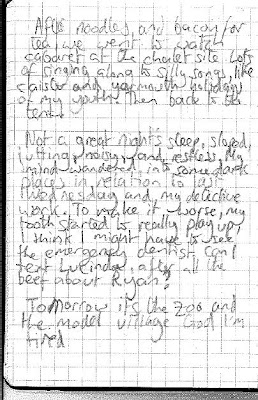 After noodles, and bacon for
tea, we went to watch
cabaret at the chalet site. Lots
of singing along to silly songs, like
caister and yarmouth holidays
of my youth. Then back to the
tent.
Not a great night's sleep, sloped,
jutting, noisy, and restless. My
mind wandered, into some dark
places in relation to last
Wednesday and, my detective
work. To make it worse, my
tooth started to really play up,
I think I might have to see
the emergency dentist. Can I
text Lucinda, after all the
beef about Ryan?
Tomorrow its the zoo and
the model village God I'm
tired